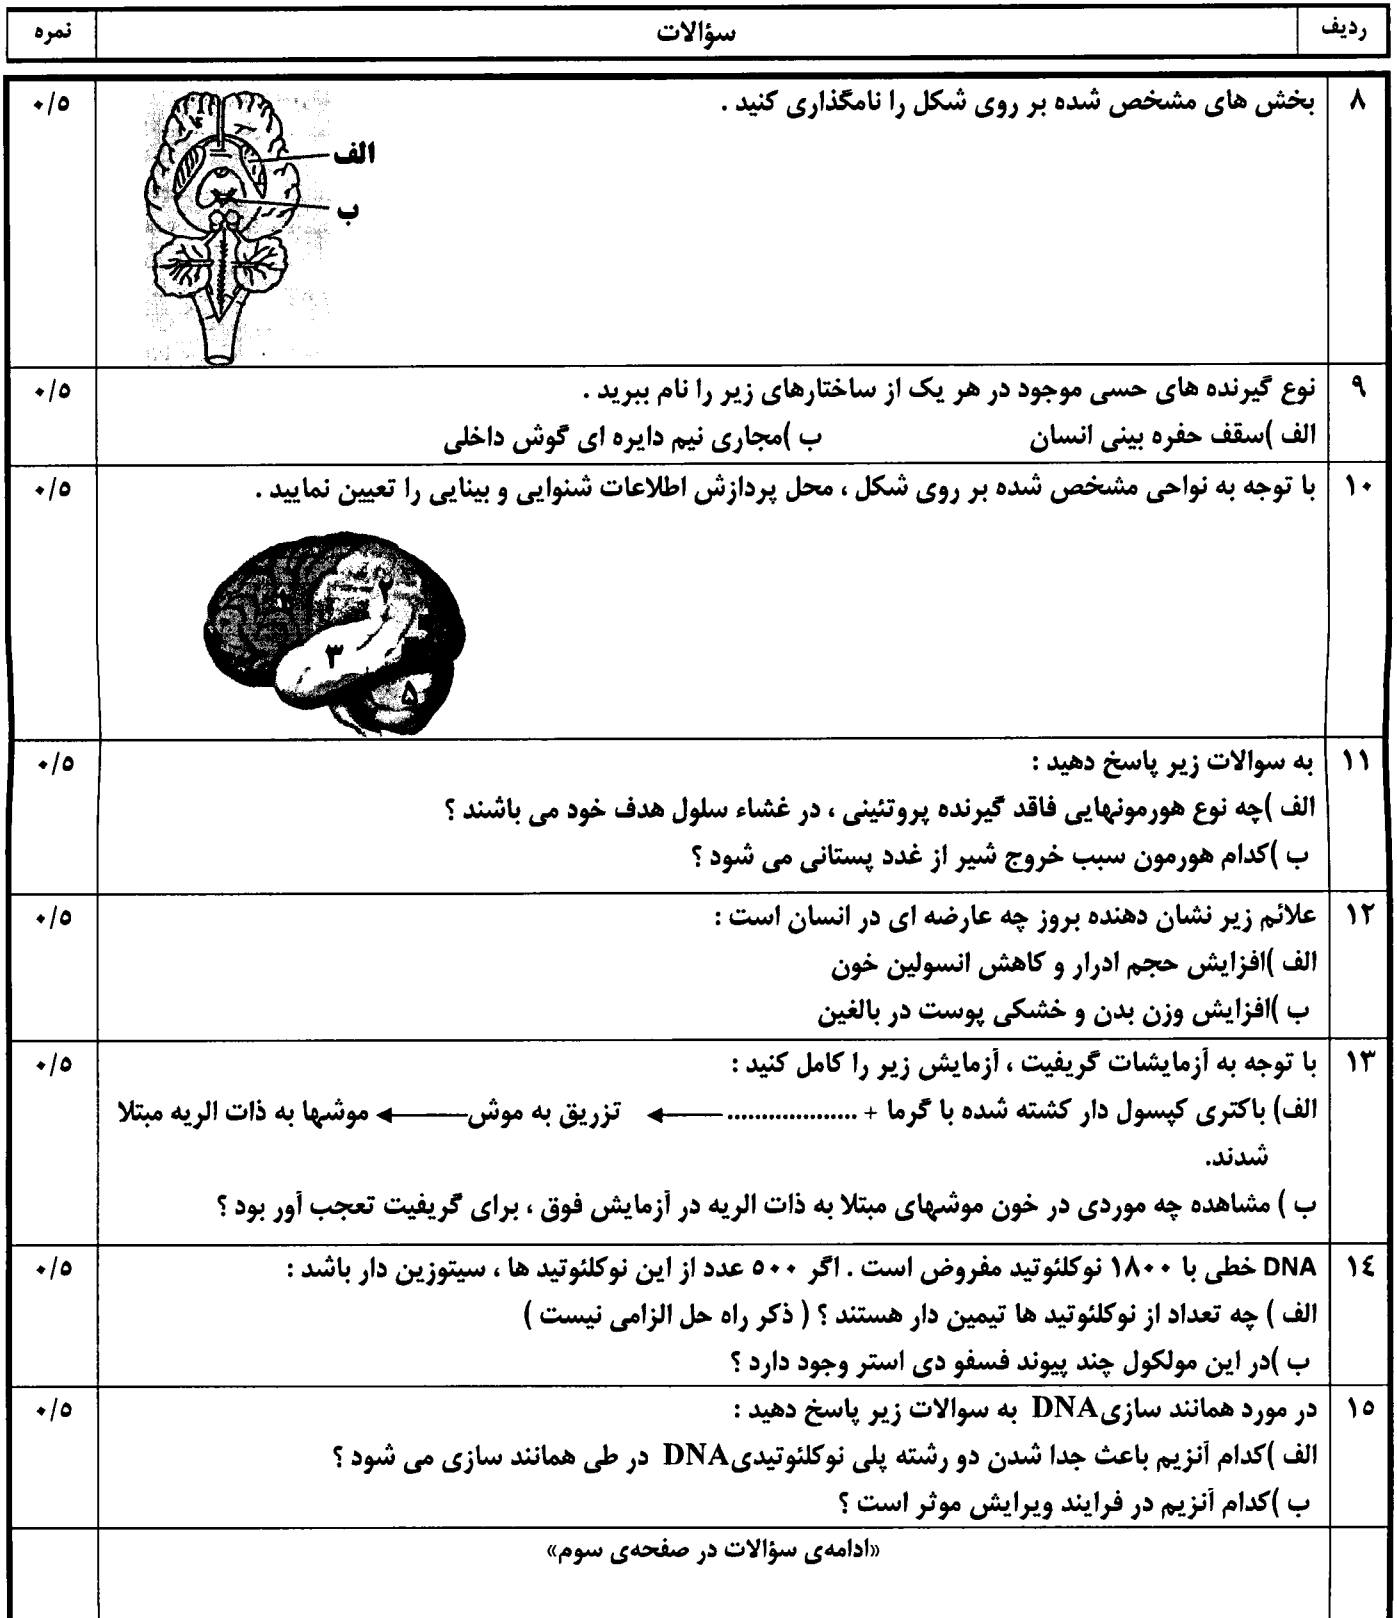 ردیف سؤالات نمره
۸ بخش های مشخص شده بر روی شکل را نامگذاری کنید . ۰/۵
الف
ب
۹ نوع گیرنده های حسی موجود در هر یک از ساختارهای زیر را نام ببرید . ۰/۵
الف )سقف حفره بینی انسان ب )مجاری نیم دایره ای گوش داخلی
۱۰ با توجه به نواحی مشخص شده بر روی شکل ، محل پردازش اطلاعات شنوایی و بینایی را تعیین نمایید . ۰/۵
۲
۳
۵
۱۱ به سوالات زیر پاسخ دهید : ۰/۵
الف )چه نوع هورمونهایی فاقد گیرنده پروتئینی ، در غشاء سلول هدف خود می باشند ؟
ب )کدام هورمون سبب خروج شیر از غدد پستانی می شود ؟
۱۲ علائم زیر نشان دهنده بروز چه عارضه ای در انسان است : ۰/۵
الف )افزایش حجم ادرار و کاهش انسولین خون
ب )افزایش وزن بدن و خشکی پوست در بالغین
۱۳ با توجه به آزمایشات گریفیت ، آزمایش زیر را کامل کنید : ۰/۵
الف) باکتری کپسول دار کشته شده با گرما + ................... ← تزریق به موش ← موشها به ذات الریه مبتلا
شدند.
ب ) مشاهده چه موردی در خون موشهای مبتلا به ذات الریه در آزمایش فوق ، برای گریفیت تعجب آور بود ؟
۱۴ DNA خطی با ۱۸۰۰ نوکلئوتید مفروض است . اگر ۵۰۰ عدد از این نوکلئوتید ها ، سیتوزین دار باشد : ۰/۵
الف ) چه تعداد از نوکلئوتید ها تیمین دار هستند ؟ ( ذکر راه حل الزامی نیست )
ب )در این مولکول چند پیوند فسفو دی استر وجود دارد ؟
۱۵ در مورد همانند سازی DNA به سوالات زیر پاسخ دهید : ۰/۵
الف )کدام آنزیم باعث جدا شدن دو رشته پلی نوکلئوتیدی DNA در طی همانند سازی می شود ؟
ب )کدام آنزیم در فرایند ویرایش موثر است ؟
«ادامه‌ی سؤالات در صفحه‌ی سوم»